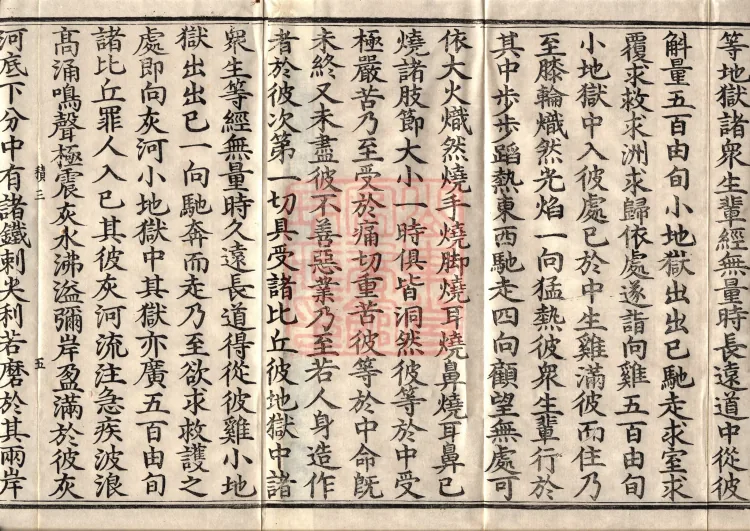 等地獄諸衆生輩經無量時長遠道中從彼
斛量五百由旬小地獄出出已馳走求室求
覆求救求洲求歸依處遂詣向雞五百由旬
小地獄中入彼處已於中生雞滿彼而住乃
至膝輪熾然光焰一向猛熱彼衆生輩行於
其中步步蹈熱東西馳走四向顧望無處可
依大火熾然燒手燒脚燒耳燒鼻燒耳鼻已
燒諸肢節大小一時俱皆洞然彼等於中受
極嚴苦乃至受於痛切重苦彼等於中命既
未終又未盡彼不善惡業乃至若人身造作
者於彼次第一切具受諸比丘彼地獄中諸
衆生等經無量時久遠長道得從彼雞小地
獄出出已一向馳奔而走乃至欲求救護之
處即向灰河小地獄中其獄亦廣五百由旬
諸比丘罪人入已其彼灰河流注急疾波浪
高涌鳴聲極震灰水沸溢彌岸盈滿於彼灰
積三 五
河底下分中有諸鐵刺尖利若磨於其兩岸